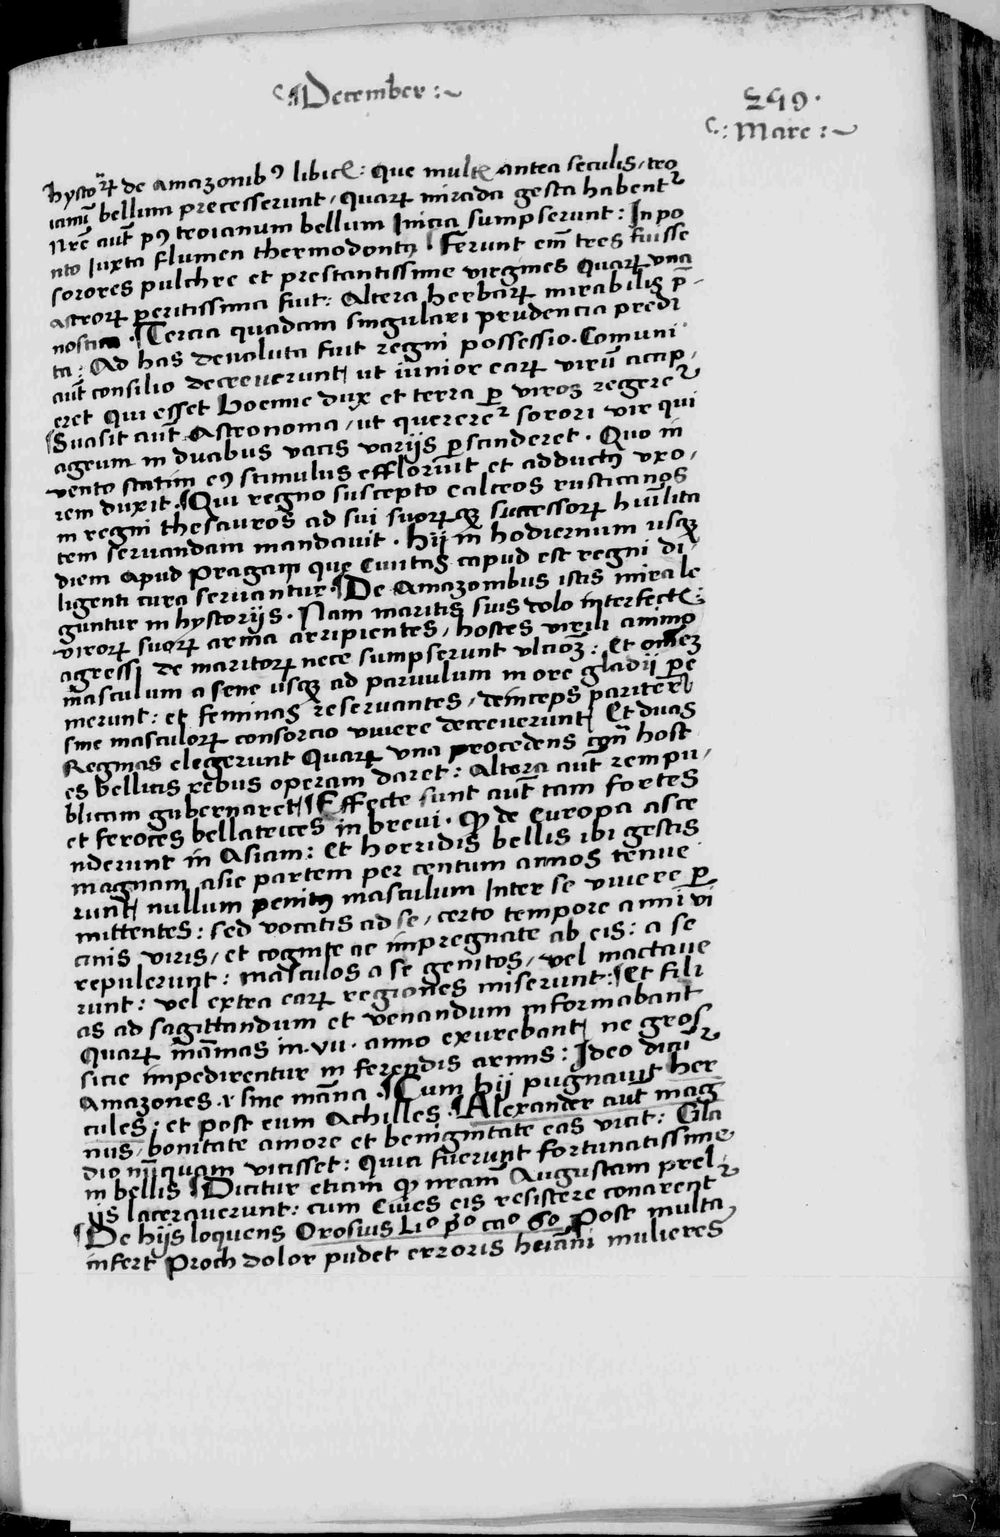 December:~
259.
:Marc:~
hystorꝝ de amazonibꝰ libicꝭ: que multꝭ antea seculis, tro
ianū bellum precesserunt, Quarꝝ mirāda gesta habent᷑
Nr̄e aūt pꝰ troianum bellum Inicia sumpserunt: In po
nto Iuxta flumen thermodontꝭ ¶ Ferunt em̄ tres fuisse
sorores pulchre et prestantissime virgines Quarꝝ vna
astrorꝝ peritissima fuit: Altera herbarꝝ mirabilis p̄-
nostica. ¶Tercia quadam singulari prudencia predi
ta: Ad has deuoluta fuit regni possessio. Comuni
aūt consilio decreuerunt, ut iunior earꝝ virū accip,
eret Qui esset Boemie dux et terra ꝑ viroꝫ regere᷑
¶Suasit aūt Astronoma, ut querere᷑ sorori vir qui
agrum in duabus vacis varijs ꝑscinderet. Quo in
vento statim eꝰ stimulus effloruit et adductꝰ vxo,
rem duxit. ¶Qui regno suscepto calceos rusticanos
in regni thesauros ad sui suorꝝqꝫ successorꝝ huīlita
tem seruandam mandauit. Hij in hodiernum usqꝫ
diem apud Pragam que Ciuitas capud est regni di,
ligenti cura seruantur. ¶De Amazonibus istis mira le
guntur in hystorijs. Nam maritis suis dolo interfectꝭ:
virorꝝ suorꝝ arma arripientes, hostes virili animo
agressi de maritorꝝ nece sumpserunt vlcioꝫ: Et omeꝫ
masculum a sene usqꝫ ad paruulum in ore gladij pe
merunt: et feminas reseruantes, deinceps pariter
sine masculorꝝ consorcio viuere decreuerunt, Et duas
Reginas elegerunt Quarꝝ vna procedens host
es bellicis rebus operam daret: Altera aūt rempu,
blicam gubernaret, ¶Effecte sunt aūt tam fortes
et feroces bellatrices in breui. ꝙ de Europa asce
nderunt in Asiam: Et horridis bellis ibi gestis
magnam asie partem per centum annos tenue
runt, nullum penitꝰ masculum Inter se viuere ꝑ
mittentes: sed vocatis ad se, certo tempore anni vi
cinis viris, et cognite ac impregnate ab eis: a se
repulerunt: masculos a se genitos, vel mactaue
runt: vel extra earꝝ regiones miserunt: ¶Et fili
as ad sagittandum et venandum informabant
Quarꝝ māmas in .vii. anno exurebant, ne gros
sicie impedirentur in ferendis armis: Ideo dicūt᷑
Amazones .i. sine māma. ¶Cum hij pugnauit her
cules: et post eum Achilles. ¶Alexander aūt mag
nus, bonitate amore et benignitate eas vicit: Gla
dio nūquam vicisset: Quia fuerunt fortunatissime
in bellis ¶Dicitur etiam ꝙ nr̄am Augustam prel,
ijs lacerauerunt: cum Ciues eis resistere conarent᷑
¶De hijs loquens Orosius Liº pº caº 60 Post multa
infert Proch dolor pudet erroris mulieres